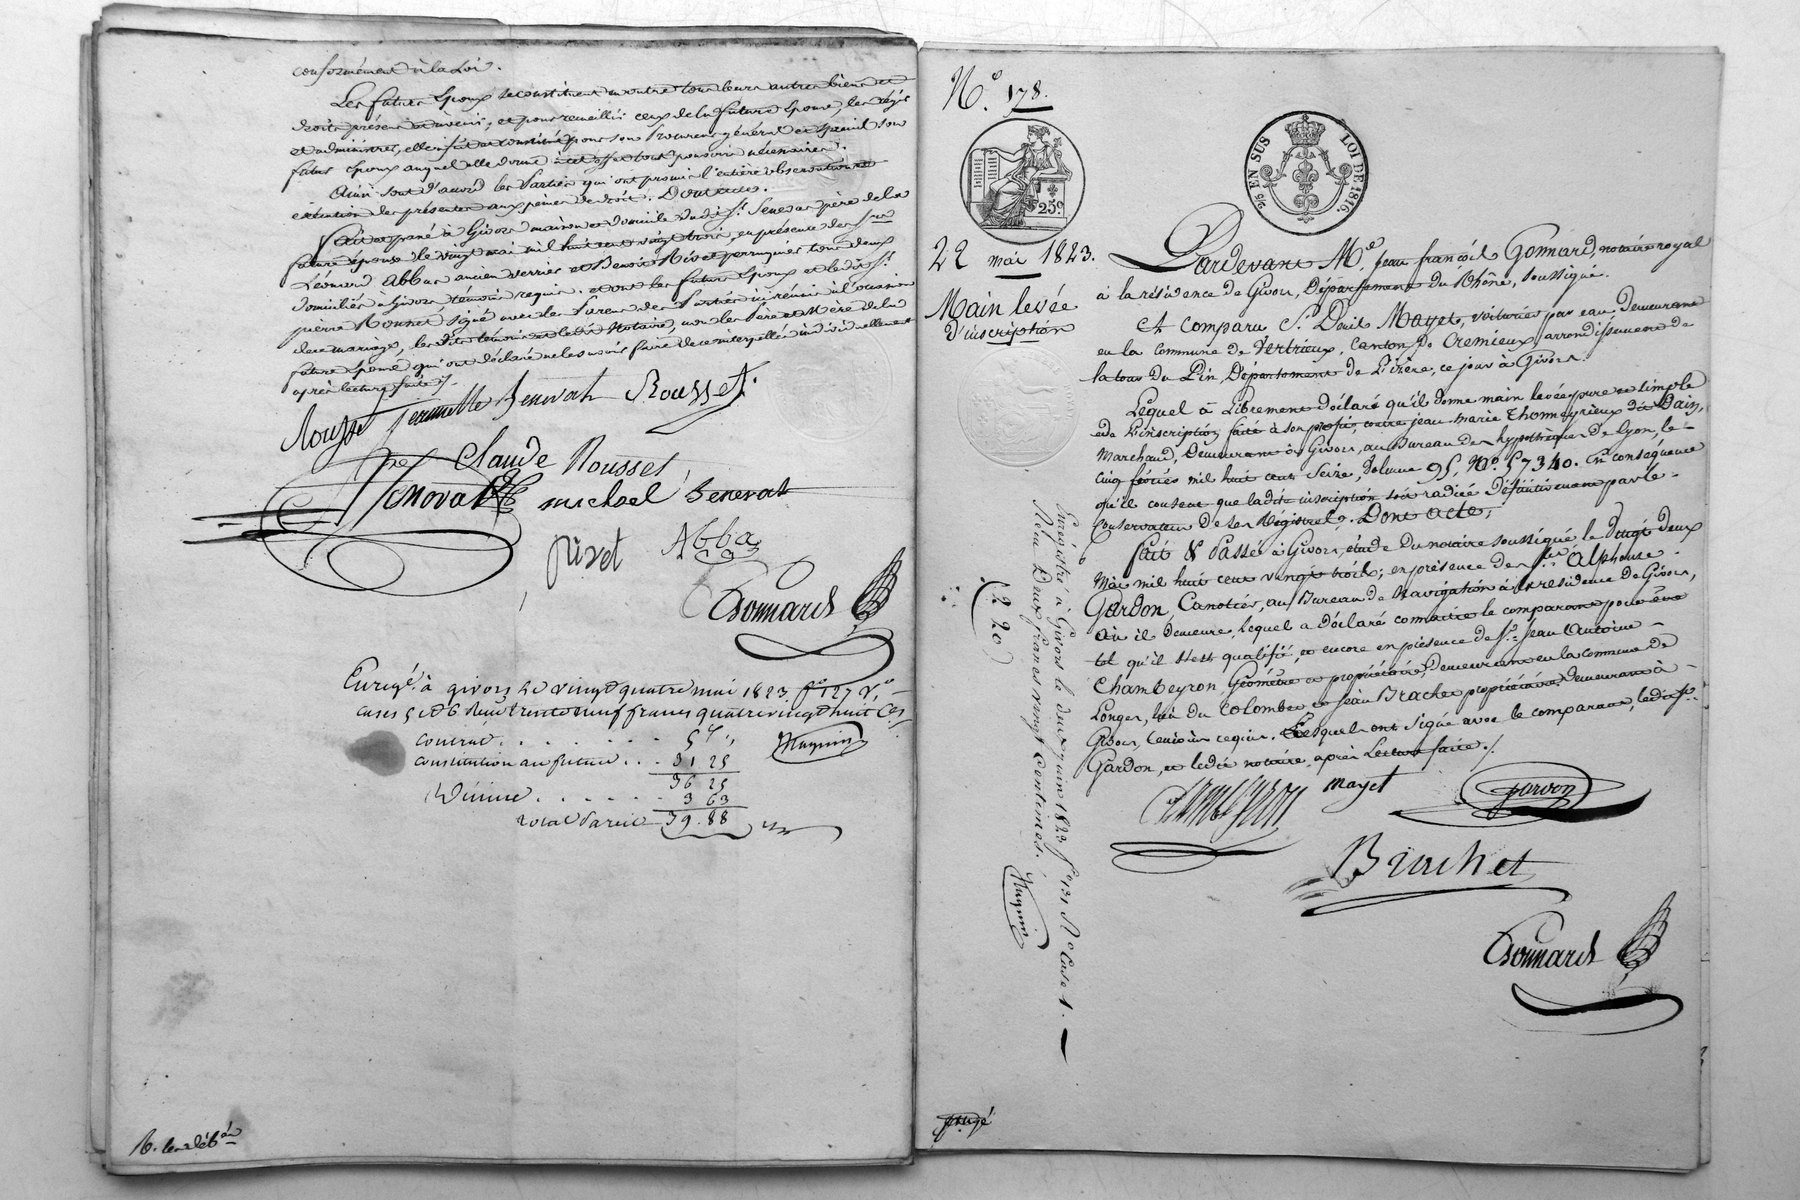 conformément à la Loi.
Les futurs Epoux se constituent en outre tous leurs autres biens et
droits présens et avenir, et pour recueillir ceux de la future Epouse, les régir
et administrer, elle en fait et constitue pour son Procureur général et spécial son
futur Epoux auquel elle donne à cet effet tout pouvoir nécessaire.
Ainsi sont d'accord les Parties qui ont promis l'entière observation et
exécution des présentes aux peines de droit. Dont acte.
fait et passé à Givors maison et domicile du dit Sr. Benevat père de la
future épouse le vingt mai mil huit cent vingt trois, en présence des Srs
Léonard Abba ancien verrier et Benoit Rivet perruquier tous deux
domiciliés à Givors, témoins requis. et ont les futurs Epoux et le dit Sr.
pierre Rousset signé avec les Parens des Parties ici réunis à l'occasion
de ce mariage, les dits témoins et le dit Notaire, non les Père et Mère de la
future épouse qui ont déclaré ne le savoir faire de ce interpellés individuellement
après lecture faite./.
Rousset jeannette Benevat Rousset
Claude Rousset
Benevat michael Benevat
Rivet Abba
Gonnard
Enregé. à givors le vingt quatre mai 1823 fo. 127 Vo.
cases 5 et 6 Reçu trente neuf francs quatre vingt huit Ces.
contrat . . . . . . . . 5 "
constitution au futur . . . 31 25
36 25
Dixime . . . . . . 3 63
total pareil 39.88
Hugnin
R. le
No. 178.
25c.
25 EN SUS LOI DE 1816.
22 mai 1823.
Main levée
d'inscription
Pardevant Me. Jean françois Gonnard, notaire royal
à la résidence de Givors, Département du Rhône, soussigné.
A comparu Sr. Denis Mayet, voiturier par eau, demeurant
en la commune de Vertrieux, canton de Cremieux, arrondissement de
la tour du Pin, Département de l'Isère, ce jour à Givors.
Lequel à librement déclaré qu'il donne main levée pure et simple
de l'inscription faite à son profit, contre jean marie Thomeyrieux dit Dain,
Marchand, Demeurant à Givors, au Bureau des hypothèques de Lyon, le
Cinq février mil huit cent Seize, Volume 95, No. 57340. En conséquence
qu'il consent que ladite inscription soit radiée définitivement par le
Conservateur de ses Régistres. Dont acte,
fait & Passé à Givors, étude du notaire soussigné le vingt deux
Mai mil huit cent vingt trois; en présence des Srs. Alphonse
Gardon, Canotier, au Bureau de Navigation à la résidence de Givors,
où il demeure, lequel a déclaré connaitre le comparant pour être
tel qu'il s'est qualifié, et encore en présence de Sr. Jean Antoine
Chambeyron, Géomètre et propriétaire, Demeurant en la commune de
Longes, lieu du Colombet et Jean Brachet propriétaire, demeurant à
Givors, témoins requis. Lesquels ont signé avec le comparant, ledit Sr.
Gardon, et ledit notaire, après Lecture faite./.
Chambeyron mayet gardon
Brachet
Gonnard
Enrégistré à Givors le deux juin 1823 fo. 131 Ro. Case 1.
Reçu Deux francs vingt Centimes.
(2 20)
Hugnin